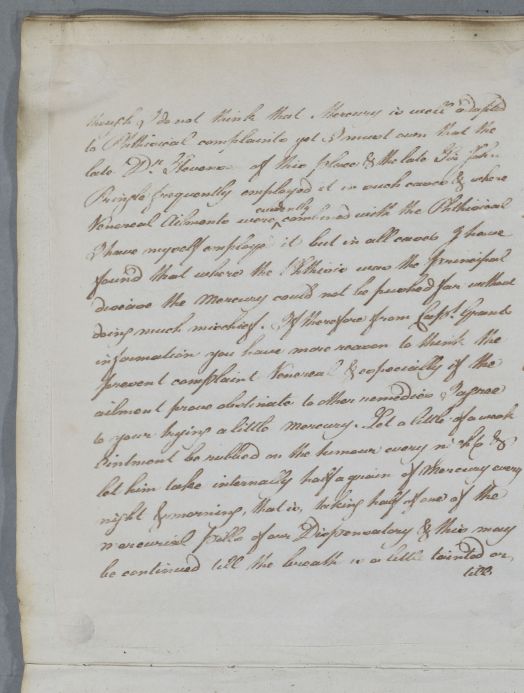 though I do not think that Mercury is well adapted
to Phthisical complaints yet I must own that the
late Dr. Stevenson of this place & the late Sir John
Pringle frequently employed it in such cases & where
evidently
Venereal Ailments were ^ combined with the Phthisical
I have myself employed it but in all cases I have
found that where the Phthisis was the principal
disease the Mercury could not be pushed far without
doing much mischief. If therefore from Capt. Grants
information you have more reason to think the
present complaint Venereal & especially if the
ailment prove obstinate to other remedies I agree
to your trying a little Mercury. Let a little of a weak
Ointment be rubbed on the tumour every night &
let him take internally half a grain of Mercury every
night & morning, that is, taking half of one of the
mercurial pills of our Dispensatory & this may
be continued till the breath is a little tainted or
till